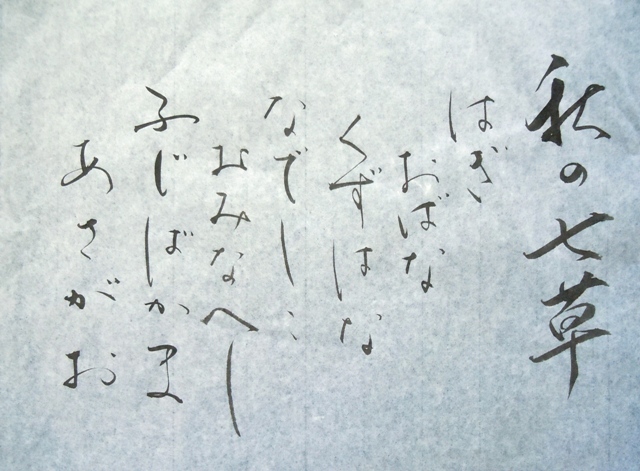 秋の七草
はぎ
おばな
くずはな
なでしこ
おみなへし
ふじばかま
あさがお